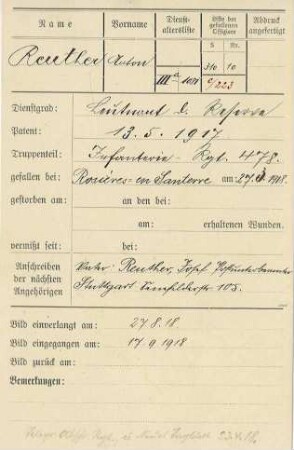 Name Vorname Dienst-altersliste Liste der gefallenen Offiziere Abdruck angefertigt
S. Nr.
Reuther Anton IIIa 310 10
c/223
Dienstgrad: Leutnant d. Reserve
Patent: 13.5.1917
Truppenteil: Infanterie-Rgt. 478.
gefallen bei: Rosières-en Santerre am: 27. 1918.
gestorben am: an den bei:
am: erhaltenen Wunden.
vermißt seit: bei:
Anschreiben der nächsten Angehörigen
Vater: Reuther, Josef
Stuttgart 105.
Bild einverlangt am: 27.8.18.
Bild eingegangen am: 17.9.1918
Bild zurück am:
Bemerkungen: